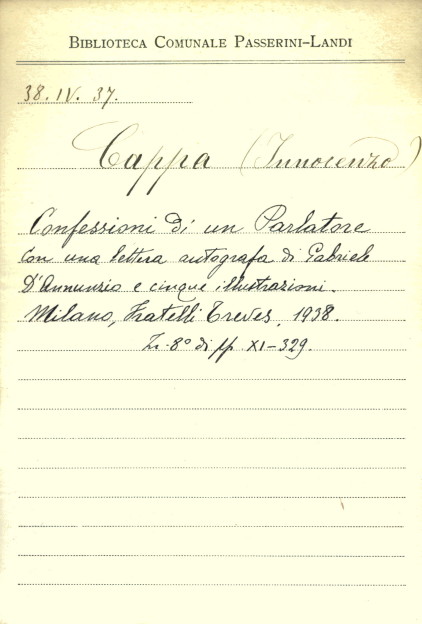 BIBLIOTECA COMUNALE PASSERINI-LANDI
38. IV. 37.
Cappa (Innocenzo)
Confessioni di un Parlatore
Con una lettera autografa di Gabriele
D'Annunzio e cinque illustrazioni.
Milano, Fratelli Treves, 1938.
In-8° di pp. XI-329.